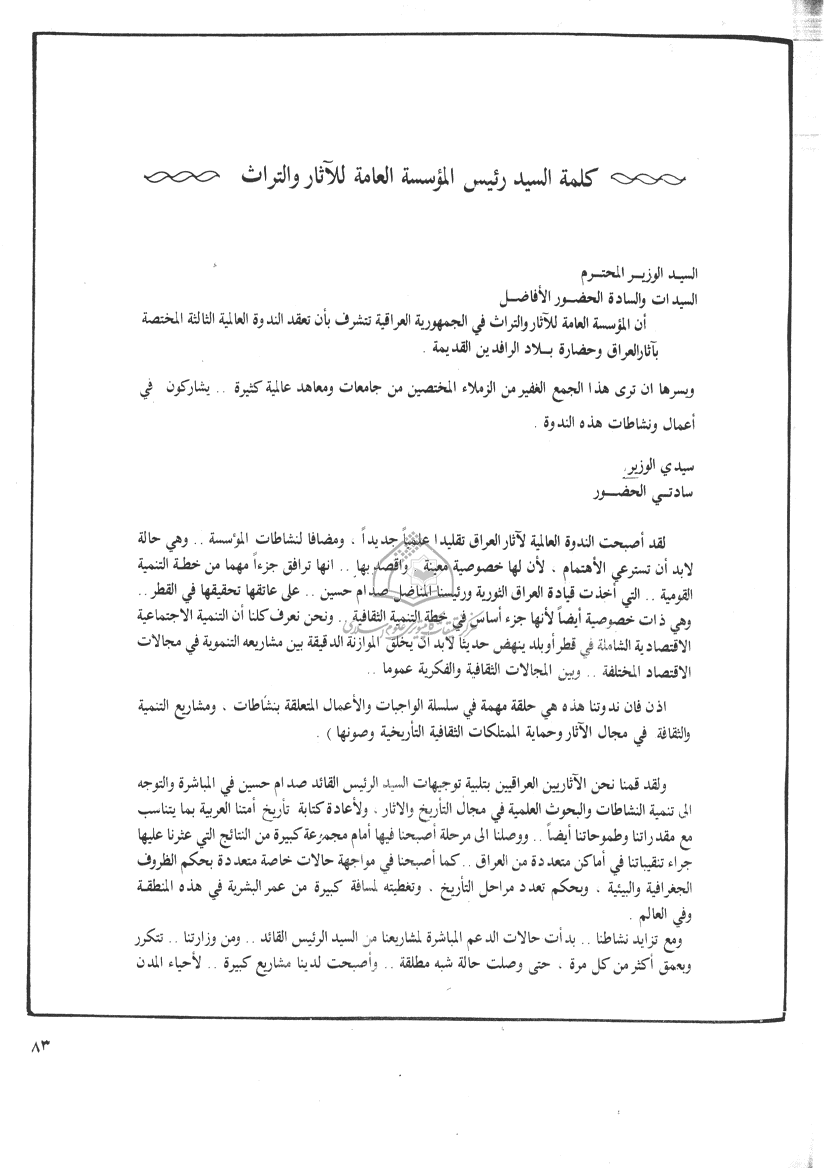 كلمة السيد رئيس المؤسسة العامة للآثار والتراث
السيد الوزير المحترم
السيدات والسادة الحضور الأفاضل
أن المؤسسة العامة للآثار والتراث في الجمهورية العراقية تتشرف بأن تعقد الندوة العالمية الثالثة المختصة
بآثار العراق وحضارة بلاد الرافدين القديمة .
ويسرها ان ترى هذا الجمع الغفير من الزملاء المختصين من جامعات ومعاهد عالمية كثيرة .. يشاركون في
أعمال ونشاطات هذه الندوة .
سيدي الوزير
سادتي الحضور
لقد أصبحت الندوة العالمية لآثار العراق تقليدا علمياً جديداً ، ومضافا لنشاطات المؤسسة .. وهي حالة
لابد أن تسترعي الأهتمام ، لأن لها خصوصية معينة واقصد بها .. انها ترافق جزءاً مهما من خطة التنمية
القومية .. التي أخذت قيادة العراق الثورية ورئيسنا المناضل صدام حسين .. على عاتقها تحقيقها في القطر ..
وهي ذات خصوصية أيضاً لأنها جزء أساس في خطة التنمية الثقافية .. ونحن نعرف كلنا أن التنمية الاجتماعية
الاقتصادية الشاملة في قطر أو بلد ينهض حديثا لابد ان يخلق الموازنة الدقيقة بين مشاريعه التنموية في مجالات
الاقتصاد المختلفة .. وبين المجالات الثقافية والفكرية عموما ..
اذن فان ندوتنا هذه هي حلقة مهمة في سلسلة الواجبات والأعمال المتعلقة بنشاطات ، ومشاريع التنمية
والثقافة في مجال الآثار وحماية الممتلكات الثقافية التأريخية وصونها ) .
ولقد قمنا نحن الآثاريين العراقيين بتلبية توجيهات السيد الرئيس القائد صدام حسين في المباشرة والتوجه
الى تنمية النشاطات والبحوث العلمية في مجال التأريخ والاثار ، ولأعادة كتابة تأريخ أمتنا العربية بما يتناسب
مع مقدراتنا وطموحاتنا أيضاً .. ووصلنا الى مرحلة أصبحنا فيها أمام مجموعة كبيرة من النتائج التي عثرنا عليها
جراء تنقيباتنا في أماكن متعددة من العراق .. كما أصبحنا في مواجهة حالات خاصة متعددة بحكم الظروف
الجغرافية والبيئية ، وبحكم تعدد مراحل التأريخ ، وتغطيته لمسافة كبيرة من عمر البشرية في هذه المنطقة
وفي العالم .
ومع تزايد نشاطنا .. بدأت حالات الدعم المباشرة لمشاريعنا من السيد الرئيس القائد .. ومن وزارتنا .. تتكرر
وبعمق أكثر من كل مرة ، حتى وصلت حالة شبه مطلقة .. وأصبحت لدينا مشاريع كبيرة .. لأحياء المدن
٨٣